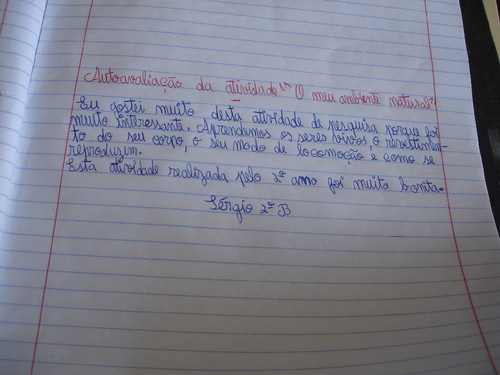 Autoavaliação da atividade "O meu ambiente natural"
Eu gostei muito desta atividade de pesquisa porque foi
muito interessante. Aprendemos os seres vivos, o revestimen-
to do seu corpo, o seu modo de locomoção e como se
reproduzem.
Esta atividade realizada pelo 2º ano foi muito bonita.
Sérgio 2º B